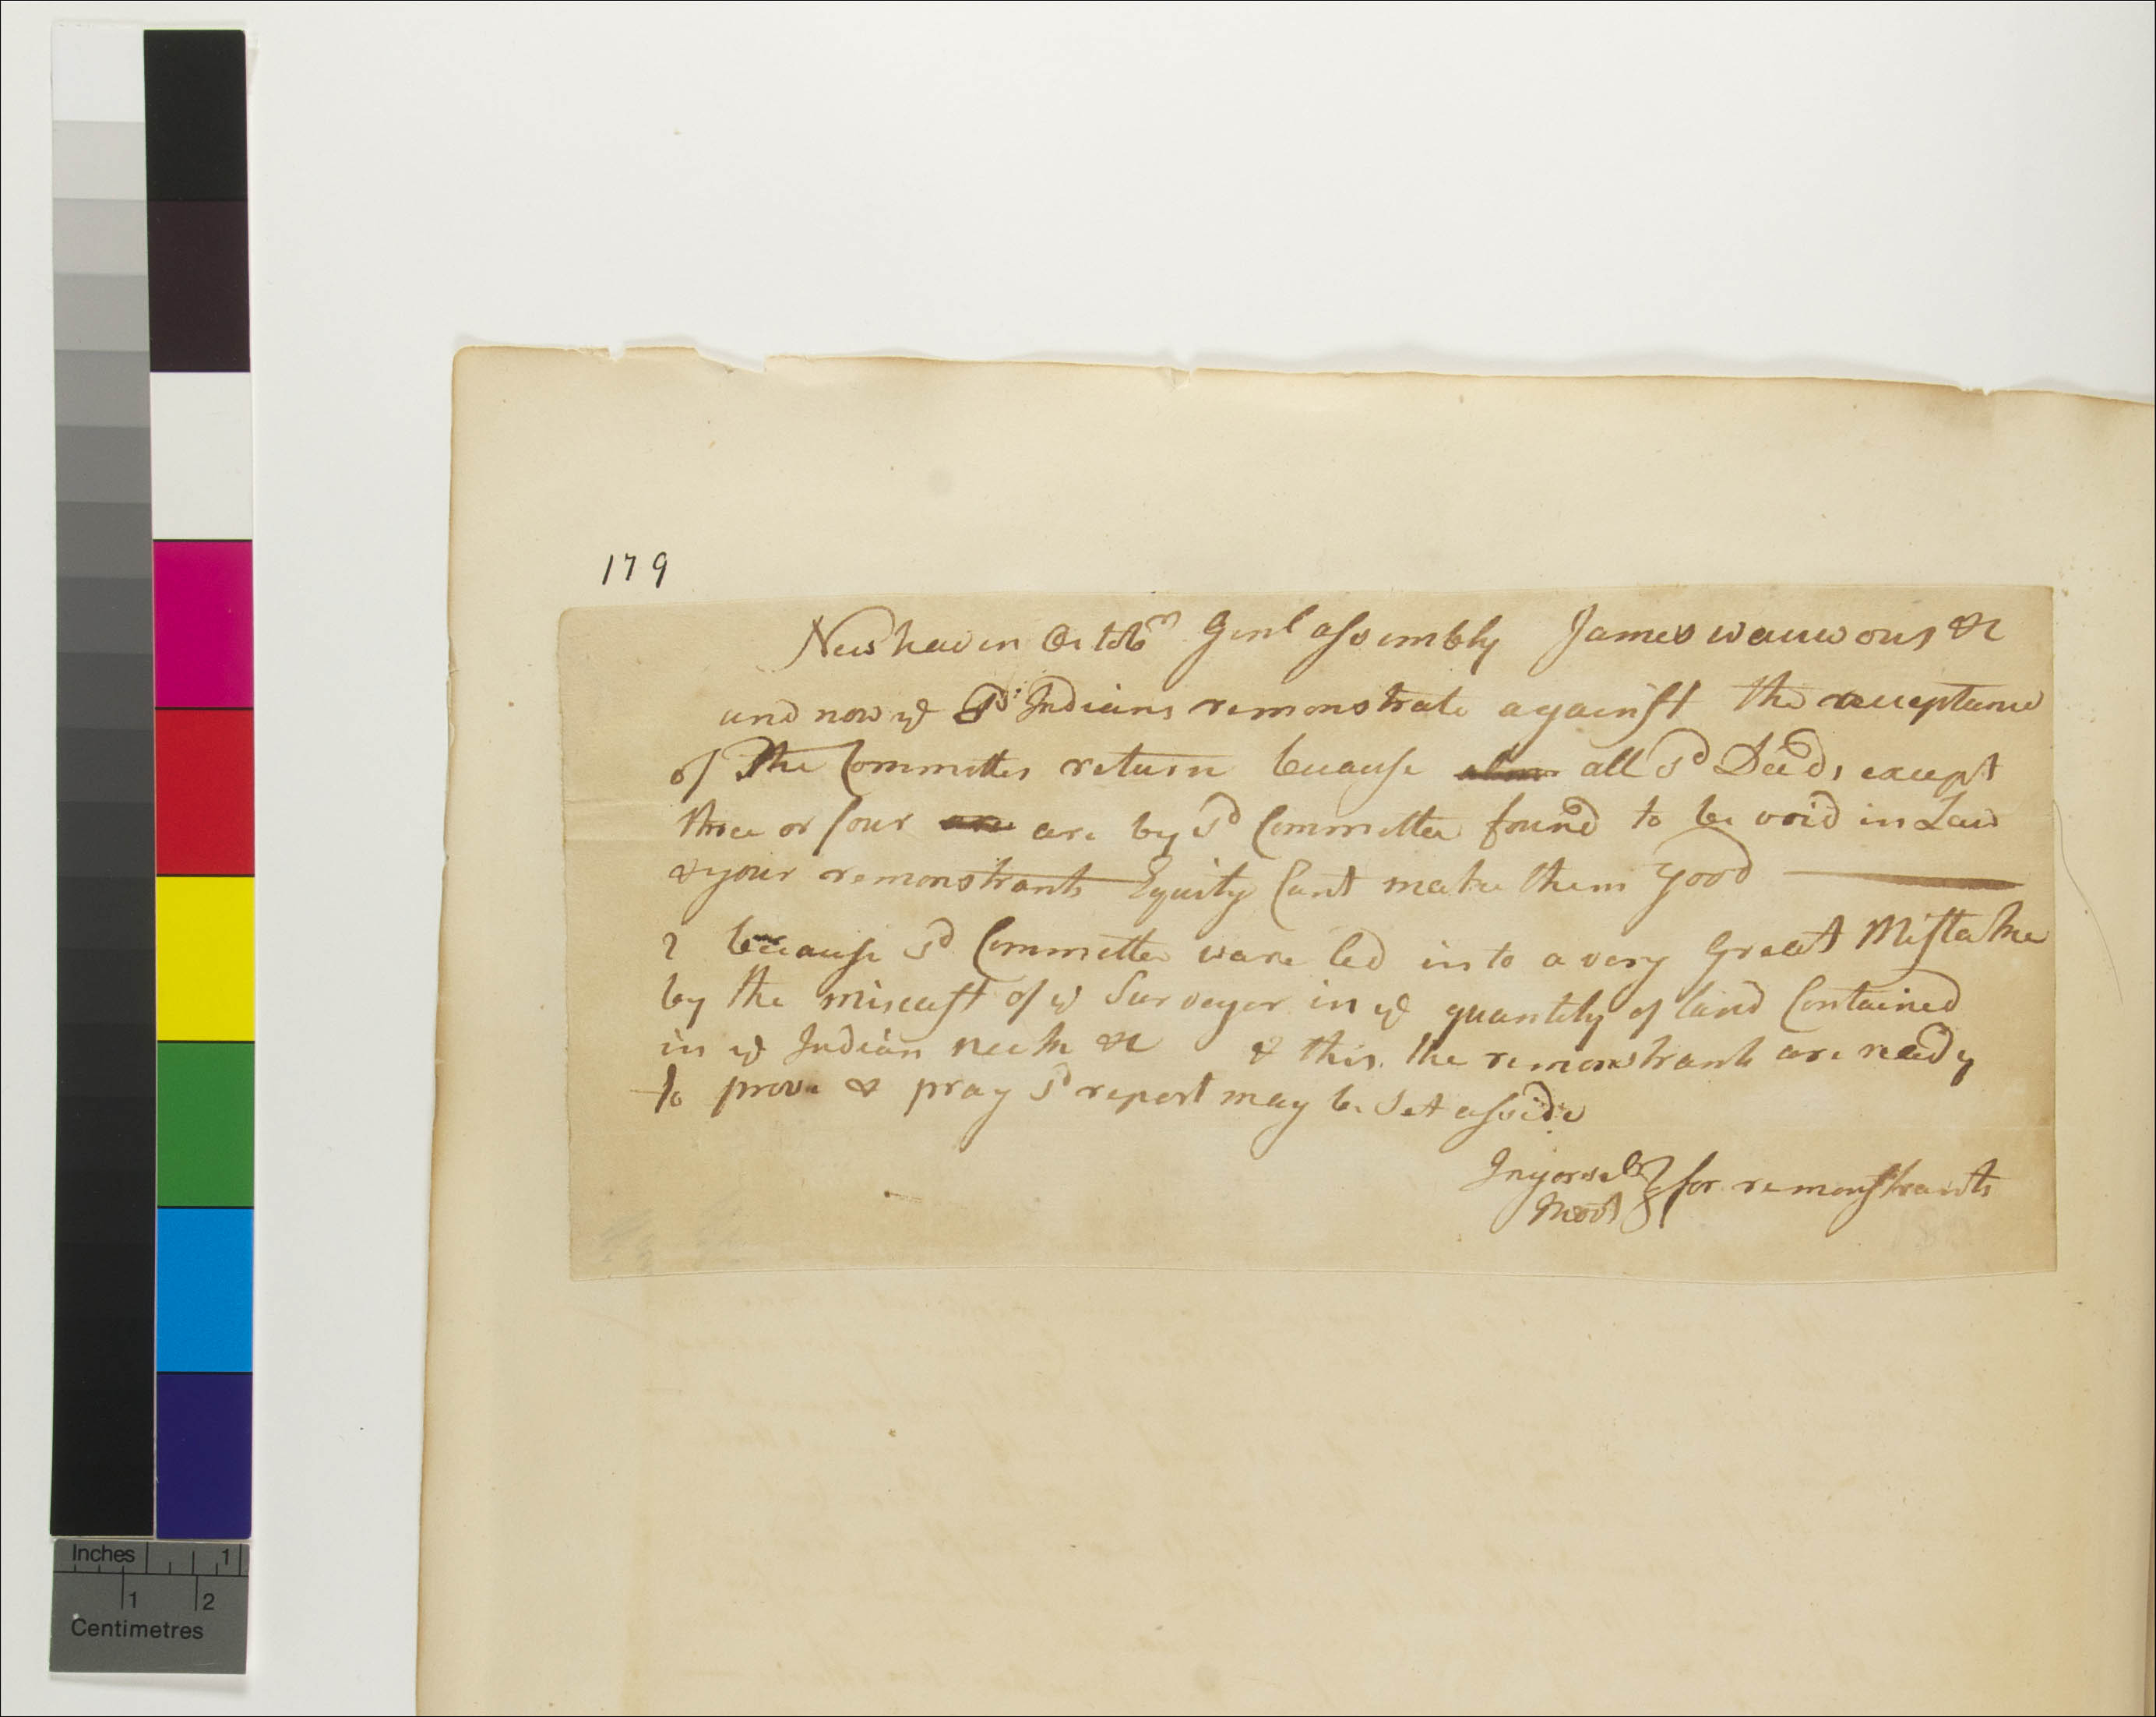 179
Newhaven Octobr Genl assembly James wauwous &c
and now ye sd Indians remonstrate against the acceptance
of The Committes return because all sd Deeds except
three or four are by sd Committee found to be void in Law
& your remonstrants Equity Cant make them good
2 because sd Committee ware led into a very Great Mistake
by the miscast of ye Surveyor in ye quantity of land Contained
in ye Indian neck &c & this the remonstrants are ready
to prove & pray sd report may be Set asside
Ingorsel for remonstrants
Inches 1
1 2
Centimetres